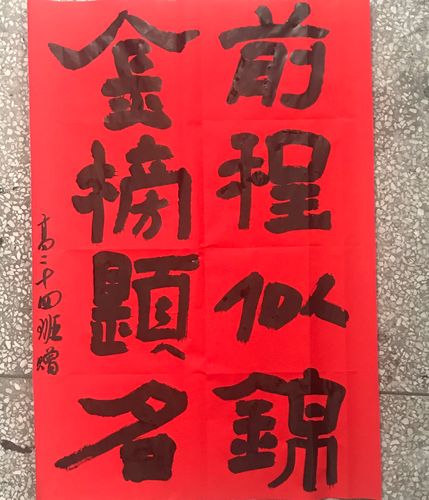 前程似錦
金榜題名
高二十四班赠